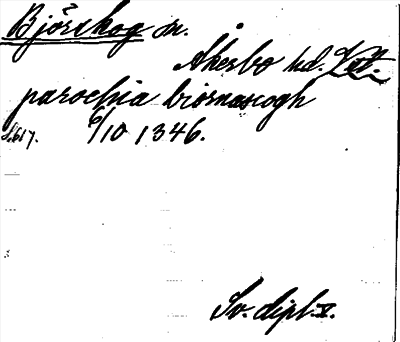 Björskog sn.
Åkerbo hd. Vstm.
parochia biornascogh
s. 617. 6/10 1346.
Sv. dipl. V.